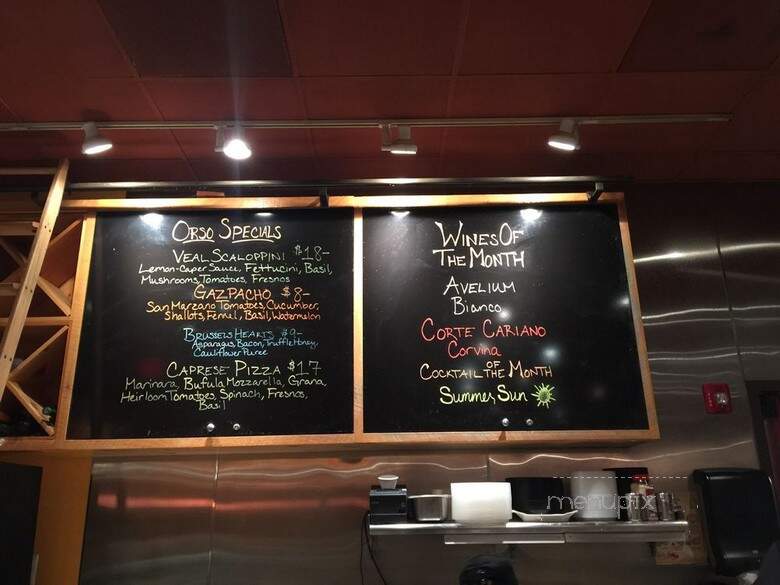 Orso Specials
Veal Scaloppini $18-
Lemon-Caper Sauce, Fettucini, Basil,
Mushrooms, Tomatoes, Fresnos
Gazpacho $8-
San Marzano Tomatoes, Cucumber,
Shallots, Fennel, Basil, Watermelon
Brussels Hearts $9-
Asparagus, Bacon, Truffle Honey,
Cauliflower Puree
Caprese Pizza $17
Marinara, Bufula Mozzarella, Grana,
Heirloom Tomatoes, Spinach, Fresnos,
Basil
Wines Of
The Month
Avelium
Bianco
Corte Cariano
Corvina
Cocktail of the Month
Summer Sun
menupix